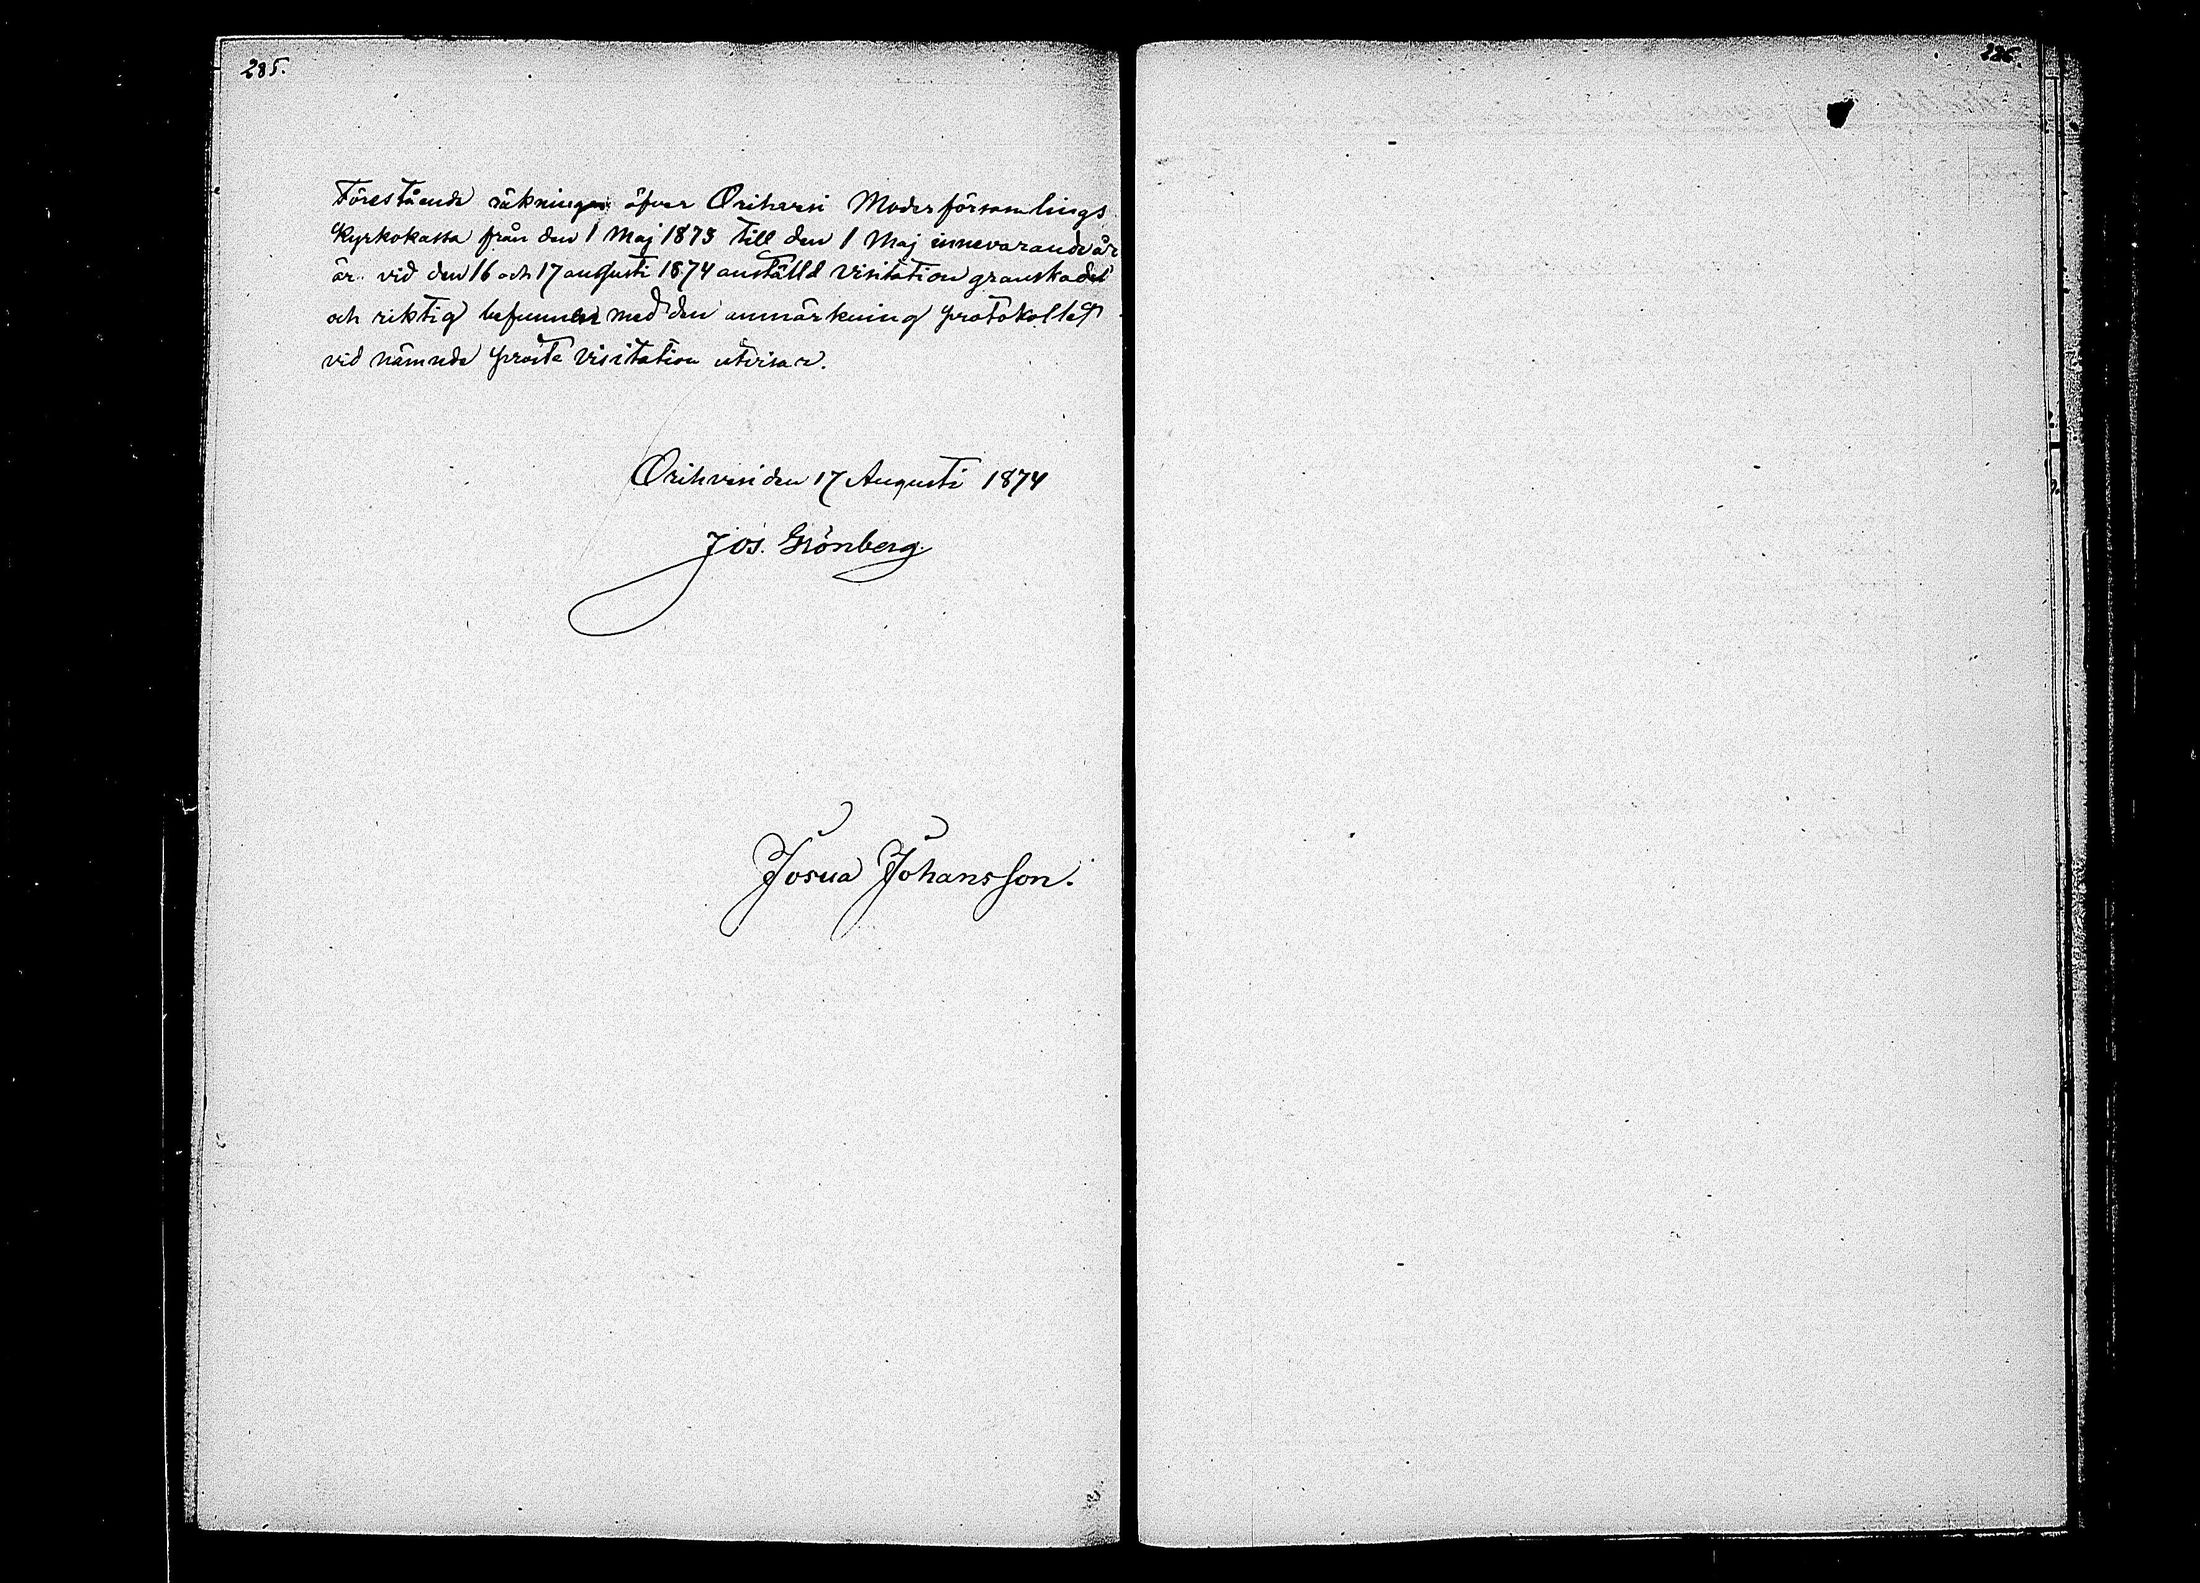 285.
Förestående räkningen öfver Orihvesi Moderförsamlings
Kyrkokassa från den 1 Maj 1873 till den 1 Maj innevarande år
är vid den 16 och 17 augusti 1874 anställd visitation granskad
och riktig befunnen med den anmärkning protokollet
vid nämnde prosta visitation utvisar.
Orihvesi den 17 Augusti 1874
Jos. Grönberg.
Josua Johansson.
286.